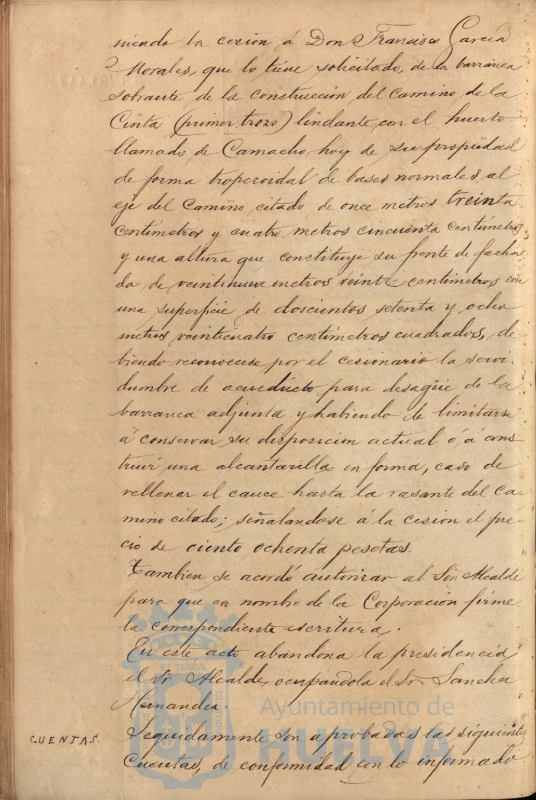 niendo la cesion á Don Francisco Garcia
Morales, que lo tiene solicitado, de la barranca
sobrante de la construccion del Camino de la
Cinta (primer trozo) lindante con el huerto
llamado de Camacho, hoy de su propiedad
de forma troperoidal de bases normales al
eje del Camino citado de once metros treinta
centímetros y cuatro metros cincuenta centímetros
y una altura que constituye su frente de facha
da de veintinueve metros veinte centimetros con
una superficie de doscientos setenta y ocho
metros veinticuatro centímetros cuadrados, de
biendo reconocerse por el cesionario la servi
dumbre de acueducto para desagüe de la
barranca adjunta y habiendo de limitarse
á conservar su disposicion actual ó á cons
truir una alcantarilla en forma, caso de
rellenar el cauce hasta la rasante del ca
mino citado; señalandose á la cesion el pre
cio de ciento ochenta pesetas.
Tambien se acordó autorizar al Sr. Alcalde
para que en nombre de la Corporacion firme
la correspondiente escritura.
En este acto abandona la presidencia
el Sr. Alcalde, ocupandola el Sr. Sanchez
Hernandez.
CUENTAS.
Seguidamente son aprobadas las siguientes
Cuentas, de conformidad con lo informado
Ayuntamiento de
HUELVA